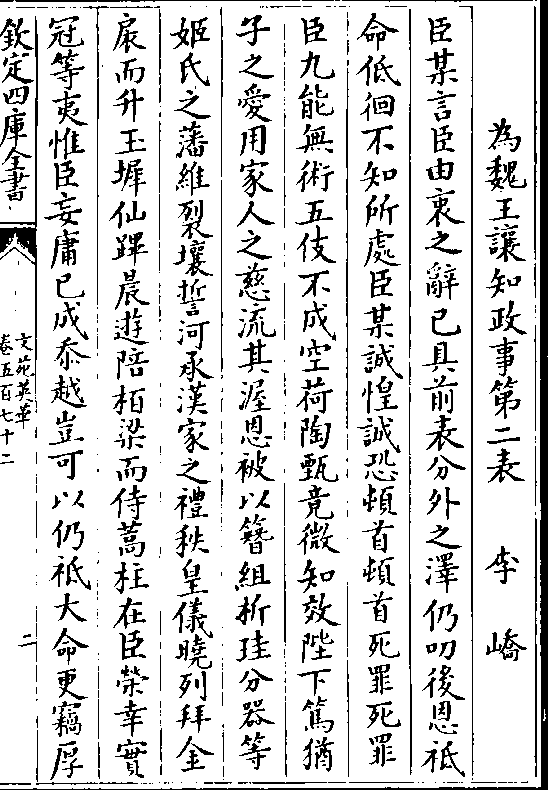 為魏王讓知政事第二表　李嶠
臣某言臣由衷之辭已具前表分外之澤仍叨後恩祗
命低徊不知所處臣某誠惶誠恐頓首頓首死罪死罪
臣九能無術五伎不成空荷陶甄竟微知效陛下篤猶
子之愛用家人之慈流其渥恩被以簪組析珪分器等
姬氏之藩維裂壤誓河承漢家之禮秩皇儀曉列拜金
扆而升玉墀仙蹕晨遊陪栢梁而侍蒿柱在臣榮幸實
冠等夷惟臣妄庸已成忝越豈可以仍祗大命更竊厚
欽定四庫全書
文苑英華
卷五百七十二
二